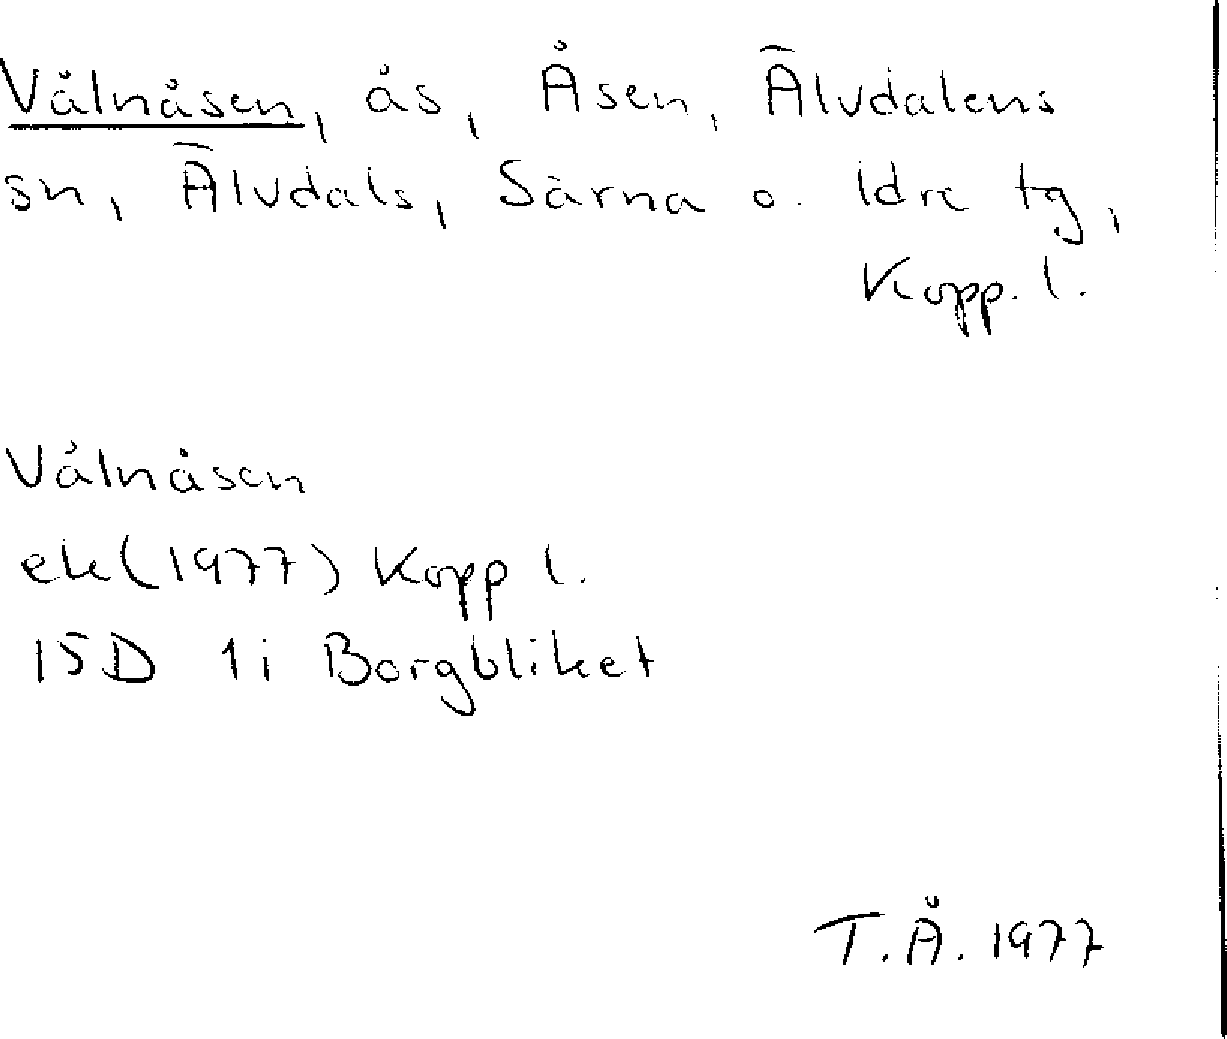 Vålnåsen, ås, Åsen, Älvdalens
sn, Älvdals, Särna o. Idre tg,
Kopp. l.
Vålnåsen
ek(1977) Kopp l.
15D 1i Borgbliket
T.Å. 1977